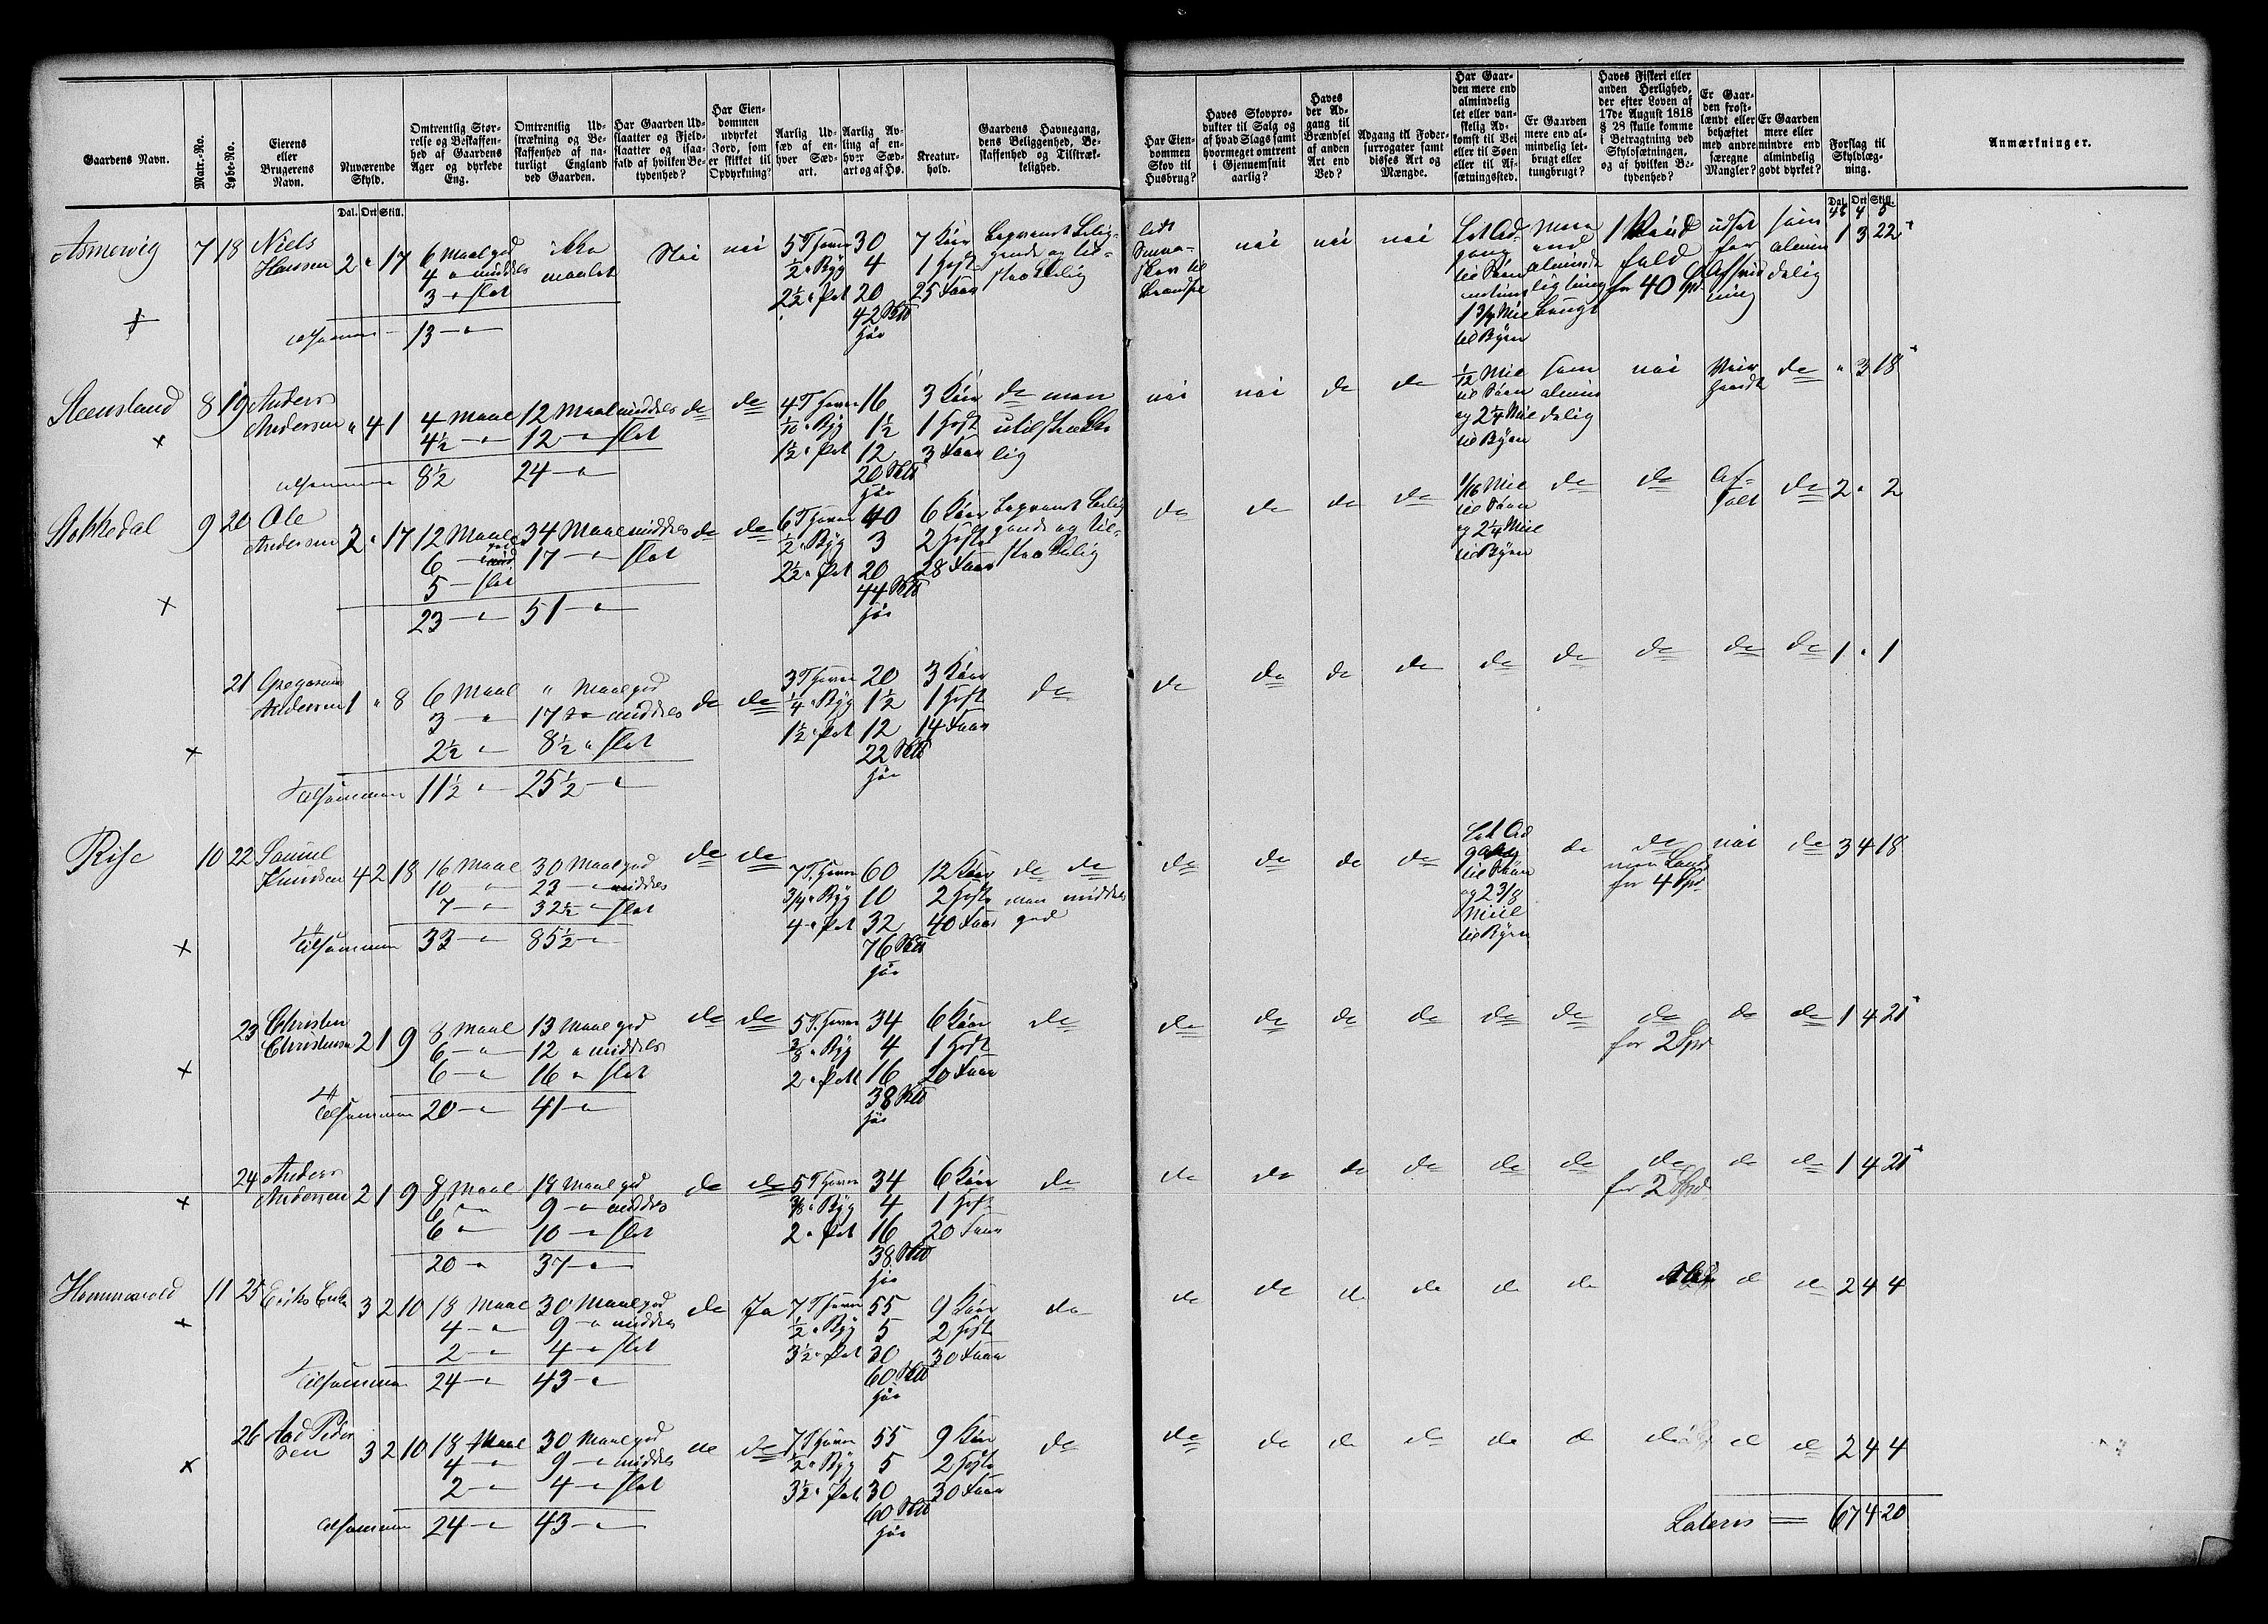 Gaardens Navn.
Matr.-No.
Løbe-No.
Eierens eller Brugerens Navn.
Nuværende Skyld.
Omtrentlig Størrelse og Beskaffenhed af Gaardens Ager og dyrkede Eng.
Omtrentlig Udstrækning og Beskaffenhed af naturligt England ved Gaarden.
Har Gaarden Udslaatter og Fjeldslaatter og isaafald af hvilken Betydenhed?
Har Eiendommen udyrket Jord, som er skikket til Opdyrkning?
Aarlig Udsæd af enhver Sædart.
Aarlig Avling af enhver Sædart og af Hø.
Kreaturhold.
Gaardens Havnegang, dens Beliggenhed, Beskaffenhed og Tilstrækkelighed.
Har Eiendommen Skov til Husbrug?
Haves Skovprodukter til Salg og af hvad Slags samt hvormeget omtrent i Gjennemsnit aarlig?
Haves der Adgang til Brændsel af anden Art end Ved?
Adgang til Fodersurrogater samt disses Art og Mængde.
Har Gaarden mere end almindelig let eller vanskelig Adkomst til Vei eller til Søen eller til Afsætningssted.
Er Gaarden mere end almindelig letbrugt eller tungbrugt?
Haves Fiskeri eller anden Herlighed, der efter Loven af 17de August 1818 § 28 skulle komme i Betragtning ved Skyldsætningen, og af hvilken Betydenhed?
Er Gaarden frostlændt eller behæftet med andre særegne Mangler?
Er Gaarden mere eller mindre end almindelig godt dyrket?
Forslag til Skyldlægning.
Anmærkninger.
Dal. Ort Skill.
Dal. Ort Skill.
48 4 5
7 18 Niels Hanssen 2 " 17 6 Maal god ikke Nei nei 5 T Havre 30 7 Køer
4 " middels maalet ½ " Byg 4 1 Hest
3 " slet 2½ " Pot 20 25 Faar
42 Hø
13
lidt nei nei nei Let Ad- mere udsat som 1 3 22
gang end for almin
til Søen fald delig
for 40
1 3/4 Miil
til Byen
Steensland 8 19 Anders Andersen " 4 1 4 Maal 12 Maal middels do do 4 T Havre 16 3 Køer do men
4½ 12 slet 1/10 " Byg 1½ 1 Hest utilstrække
1½ " Pot 12 3 Faar lig
8½ 24 20
Hø
nei nei do do 1/12 Miil som nei do " 3 18
til Søen almin
og 2¼ Miil delig
til Byen
Stokkedal 9 20 Ole Andersen 2 " 17 12 Maal 34 Maal middels do do 6 T Havre 40 6 Køer
6 17 slet ½ " Byg 3 2 Heste
5 slet 2½ " Pot 20 28 Faar
23 51 44
Hø
do do do do 1/16 Miil do do do 2 " 2
til Søen
og 2¼ Miil
til Byen
21 Andersen 1 " 8 6 Maal " Maal god do do 3 T Havre 20 3 Køer do
3 17 middels ¼ " Byg 1½ 1 Hest
2½ 8½ " slet 1½ " Pot 12 14 Faar
Tilsammen 11½ 25½ 22
Hø
do do do do do do do do do 1 " 1
Rise 10 22 Knudsen 4 2 18 16 Maal 30 Maal god do do 7 T. Havre 60 12 Køer do do
10 23 middels 3/4 " Byg 10 2 Heste men middels
7 32½ slet 4 " Pot 32 40 Faar god
Tilsammen 33 85½ 76
Hø
do do do do Let Ad do do nei do 3 4 18
gang
til Søen for 4
og 2 3/8
Miil
til Byen
23 Christen Christensen 2 1 9 8 Maal 13 Maal god do do 5 T. Havre 34 6 Køer do
6 12 " middels 3/8 " Byg 4 1 Hest
6 16 " slet 2 " Pot 16 20 Faar
Tilsammen 20 41 38
Hø
do do do do do do do do do 1 4 21
for 2
24 Anders Andersen 2 1 9 8 Maal Maal god do do 5 T Havre 34 6 Køer do
6 9 middels 3/8 " Byg 4 1 Hest
6 10 slet 2 " Pot 16 20 Faar
20 37 38
Hø
do do do do do do do do do 1 4 21
for 2
11 25 3 2 10 18 Maal 30 Maal god do Ja 7 T Havre 55 9 Køer do
4 9 middels ½ " Byg 5 2 Heste
2 4 slet 3½ " Pot 30 30 Faar
Tilsammen 24 43 60
Hø
do do do do do do do do 2 4 4
26 3 2 10 18 Maal 30 Maal god do do 7 T Havre 55 9 Køer do
4 9 middels ½ " Byg 5 2 Heste
2 4 slet 3½ " Pot 30 30 Faar
Tilsammen 24 43 60
Hø
do do do do do do do do do 2 4 4
Lateris = 67 4 20